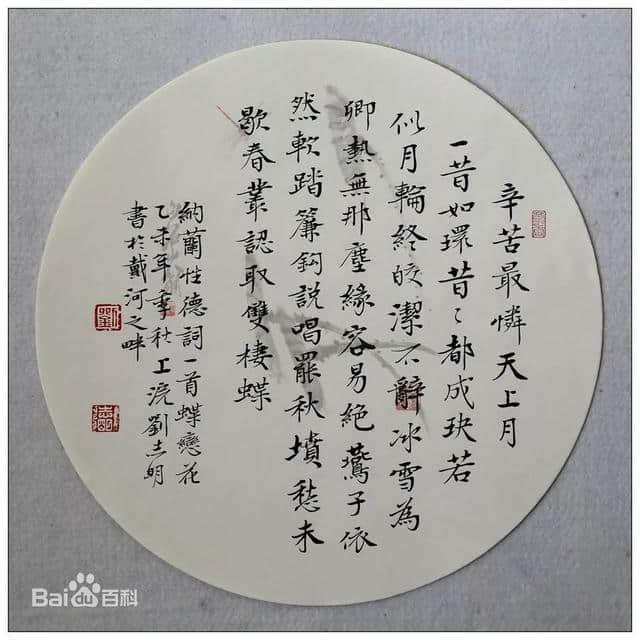 辛苦最憐天上月
一昔如環昔〻都成玦若
似月輪終皎潔不辭冰雪為
卿熱無那塵緣容易絕鷰子依
然軟踏簾鈎說唱罷秋墳愁未
歇春叢認取雙棲蝶
納蘭性德詞一首蝶戀花
乙未年季秋上浣劉志明
書於戴河之畔
劉
Baidu百科